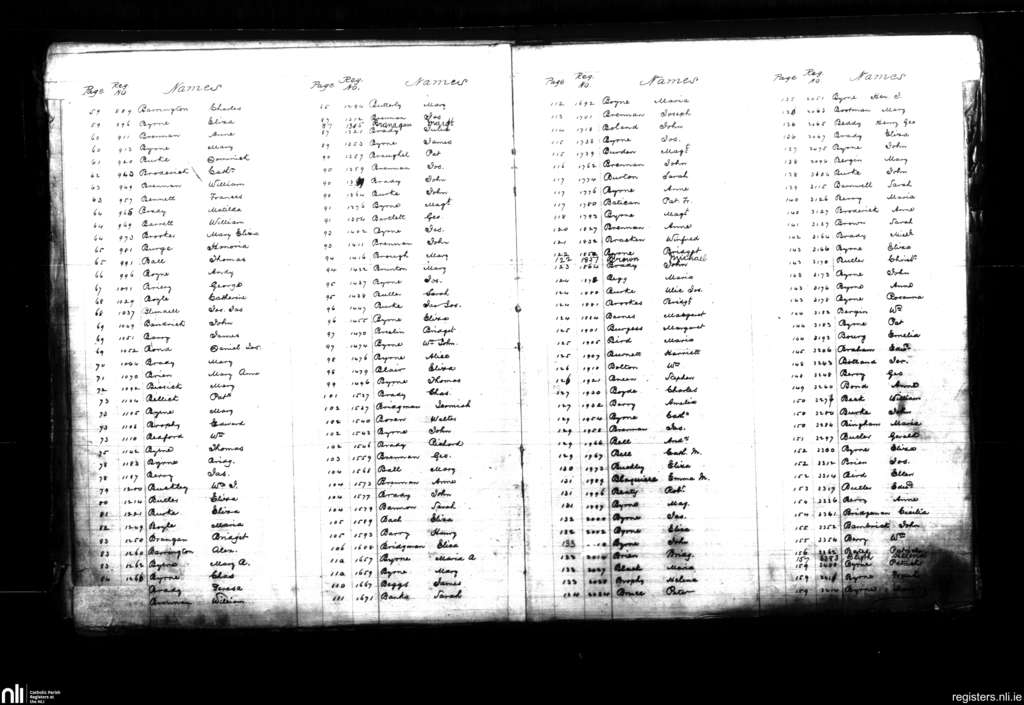 Page Reg. No. Names
59 889 Barrington Charles
59 896 Byrne Eliza
60 911 Brennan Anne
60 913 Byrne Mary
61 920 Burke
62 963 Broderick
63 949 Brennan William
63 957 Bennett Frances
64 966 Brady Matilda
64 969 Barrett William
64 973 Brooke Mary Eliza
65 981 Burge Honoria
65 991 Ball Thomas
66 996 Boyce Andy
67 1091 George
68 1029 Boyle Catherine
68 1037 Jas. Jos.
69 1049 Bambrick John
69 1051 Barry James
69 1052 Bond Daniel Jos.
70 Brady Mary
71 1070 Brien Mary Anne
72 1092 Mary
73 1104 Bellick Patk
73 1105 Byrne Mary
73 1108 Brophy Edward
73 1110 Wm
75 1142 Byrne Thomas
78 1183 Byrne Bridg.
78 1187 Berry Jas.
79 1200 Buckley Wm J.
80 1214 Butler Eliza
81 1221 Burke Eliza
82 1249 Boyle Maria
83 1250 Brangan Bridget
83 1260 Barrington Alex.
83 1262 Byrne Mary A.
84 1268 Byrne Chas
Brady Teresa
William
Page Reg. No. Names
85 1284 Butterly Mary
87 1312 Brennan Jos
87 1305
87 1321 Brady Julia
89 1353 Byrne James
90 1357 Braughel Pat
90 1359 Brennan Jos.
90 Brady John
90 1364 Burke John
91 1376 Byrne Magt
91 1386 Bartlett Geo
93 1402 Byrne Jos.
93 1411 Brennan John
94 1416 Brough Mary
94 1422 Brunton Mary
95 1427 Byrne Jos.
95 1428 Butler Sarah
96 1447 Burke
96 1455 Byrne Eliza
97 1470 Breslin Bridget
97 1474 Byrne Wm John.
98 1476 Byrne Alice
98 1479 Blair Eliza
99 1496 Byrne Thomas
101 1527 Brady Chas.
102 1537 Bridgman Jermiah
102 1540 Bowen Walter
102 1543 Byrne John
102 1546 Brady Richard
103 1559 Brennan Geo.
104 1568 Ball Mary
104 1573 Brennan Anne
104 1577 Brady John
104 1579 Bannon Sarah
105 1589 Bach Eliza
105 1593 Barry Henry
106 1602 Bridgman Eliza
110 1657 Byrne Maria A
110 1659 Byrne Mary
110 1667 Beggs James
111 1671 Banks Sarah
Page Reg. No. Names
112 1692 Boyne Maria
113 1701 Brennan Joseph
114 1718 Boland John
115 1738 Byrne Jos.
115 1739 Burden Magt
116 1762 Brennan John
117 1774 Burton Sarah
117 1776 Byrne Anne
117 1780 Batican Pat Fr.
118 1793 Byrne Magt
120 1827 Brennan Anne
121 1832 Bracken Winfred
122 1852 Byrne Bridget
122 1857 Brown Michael
123 1864 Brady John
124 1878 Begg Maria
124 1880 Burke Ulic Jos.
124 1881 Brookes Bridgt
124 1884 Barnes Margaret
125 1901 Burgess Margaret
125 1905 Bird Maria
125 1907 Burnett Harriett
126 1910 Bolton Wm
126 1921 Breen Stephen
127 1930 Boyde Charles
127 1932 Berry Amelia
129 1954 Byrne Cath
129 1958 Brennan Jas.
129 1966 Bell Andw
129 1967 Bell Cath M.
130 1973 Buckley Eliza
131 1989 Blaquiere Emma M.
131 1996 Beaty Robt
131 1997 Byrne Mag.
132 2000 Byrne Jas.
132 2002 Byrne Eliza
133 Byrne John
133 2016 Brien Bridg
133 2027 Black Maria
133 2028 Brophy Melena
134 2034 Bruce Peter
Page Reg. No. Names
135 2051 Byrne
136 2063 Bootman Mary
136 2065 Beddy Henry Geo
136 2067 Brady Eliza
137 2075 Byrne John
138 2096 Bergin Mary
138 2104 Burke John
139 2115 Barnwell Sarah
140 2126 Berry Maria
140 2127 Broderick Anne
141 2137 Brown Sarah
142 2164 Brady Michl
143 2166 Byrne Eliza
143 2170 Butler Christr
143 2173 Byrne John
143 2176 Byrne Anne
143 2178 Byrne Rosanna
144 2182 Bergin Wm
144 2183 Byrne Pat
144 2193 Bowry Emelia
145 2206 Braham Edwd
148 2243 Botland Jas.
148 2248 Berry Geo
149 2260 Bond Anne
150 2276 Back William
150 2280 Burke John
150 2284 Bingham Maria
151 2297 Butler Gerald
152 2300 Byrne Eliza
152 2312 Brien Jos.
152 2314 Bird Ellen
153 2319 Butler Edwd
154 2336 Berry Anne
154 2341 Bridgeman Cecilia
155 2352 Bambrick John
155 2354 Berry Wm
156 2362
157 2383
159 2408 Byrne Patrick
159 2411 Byrne
159 2414 Byrne
nli
Catholic Parish
Registers at
the NLI
registers.nli.ie